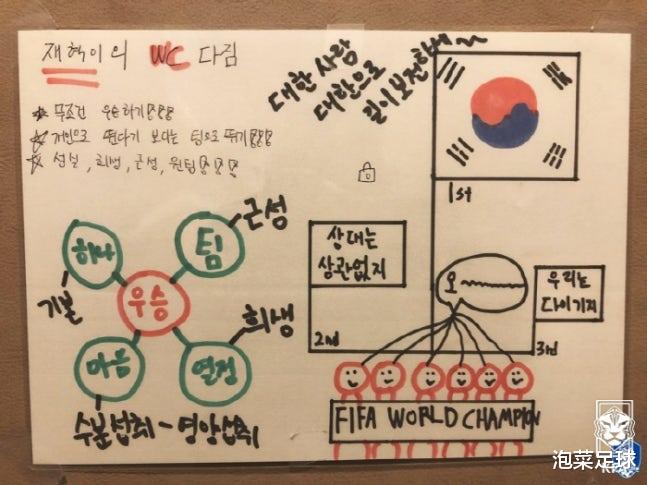 재혁이의 WC 다짐
무조건 우승하기!!!
개인으로 뛴다기 보다는 팀으로 뛰기!!!
성실, 희생, 근성, 원팀!!!!
대한 사람
대한으로
길이 보전하세~
1st
상대는
상관없지
오
우리는
다이기지
2nd
3rd
FIFA WORLD CHAMPION
하나
팀
근성
우승
기본
마음
열정
희생
수분섭취 - 영양섭취
泡菜足球